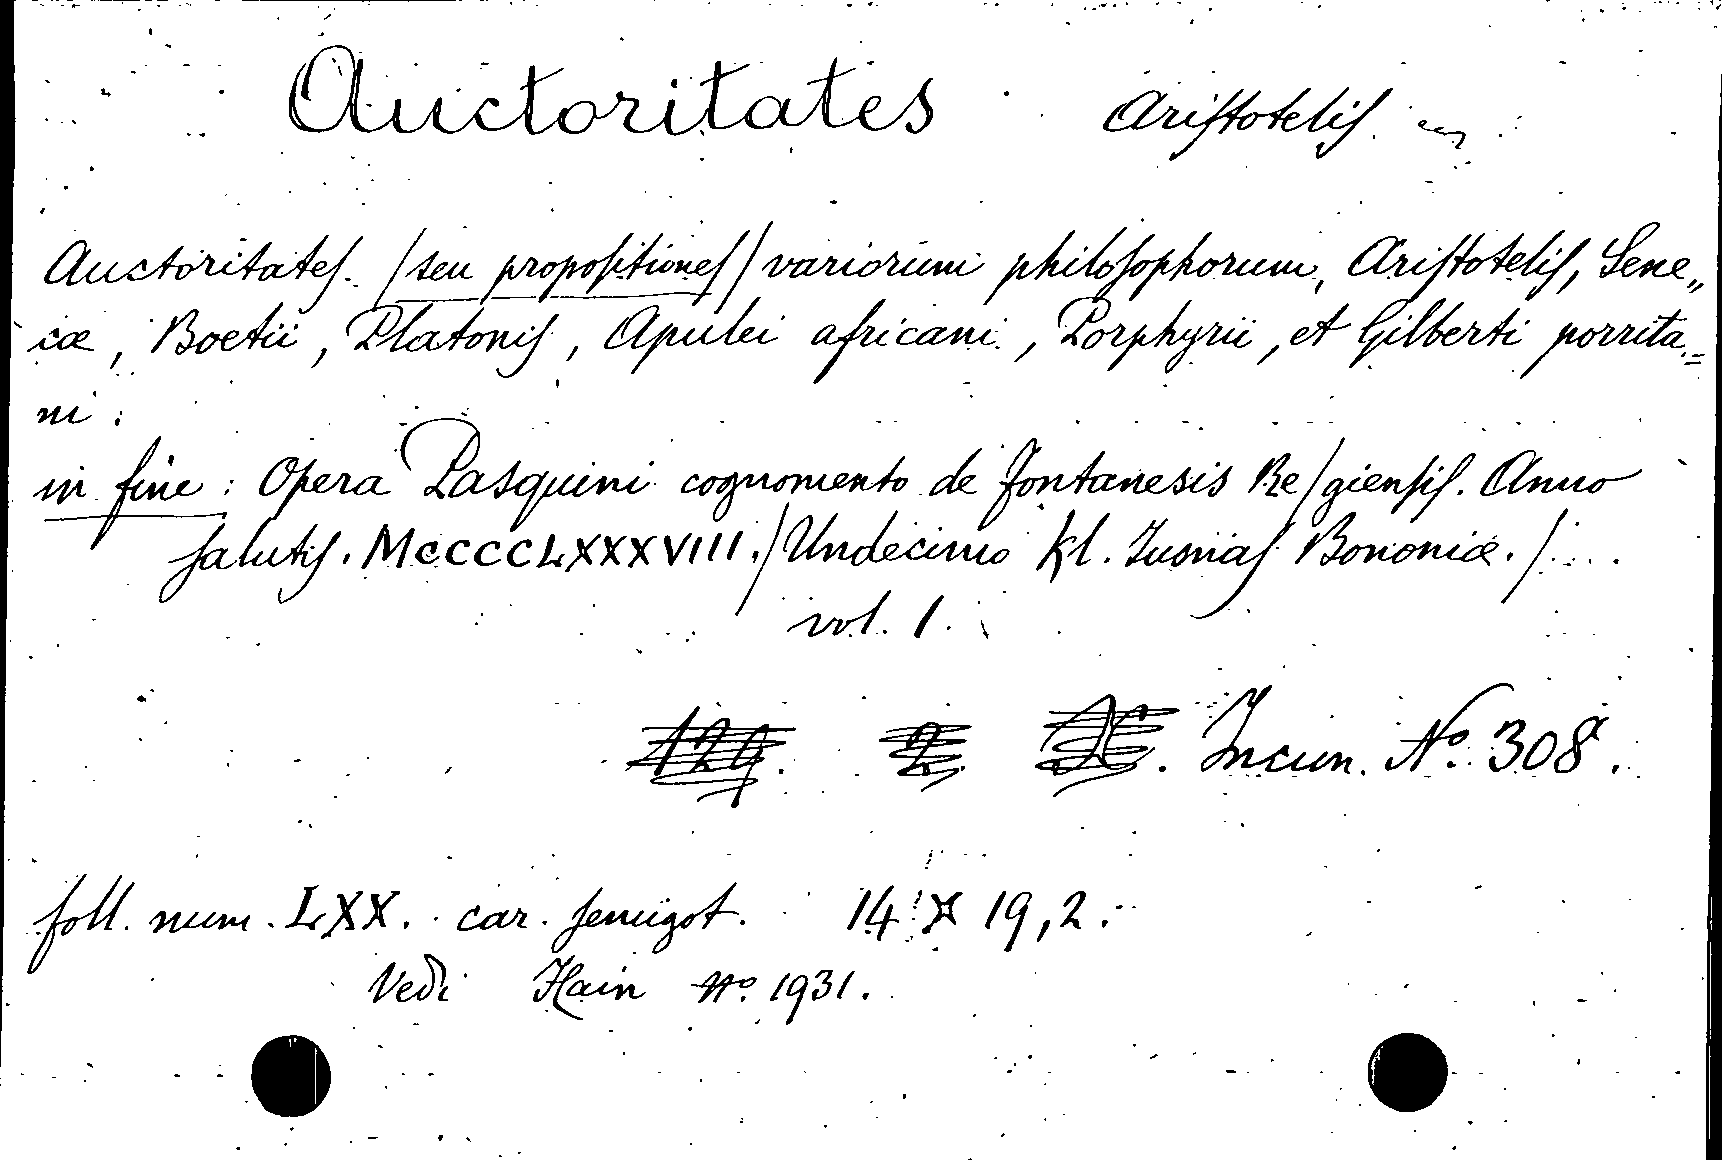 Auctoritates Aristotelis
Auctoritates. /seu propositiones/ variorum philosophorum, Aristotelis, Sene„
cæ, Boetii, Platonis, Apulei africani, Porphyrii, et Gilberti porrita=
ni:
in fine: Opera Pasquini cognomento de fontanesis Re/giensis. Anno
salutis. MCCCCLXXXVIII./Undecimo Kl. Iusnias Bononiæ./....
vol. 1.
129. 2. Incun. Nº. 308.
foll. num. LXX. car. semigot. 14 X 19,2.
Vedi Hain Nº. 1931.